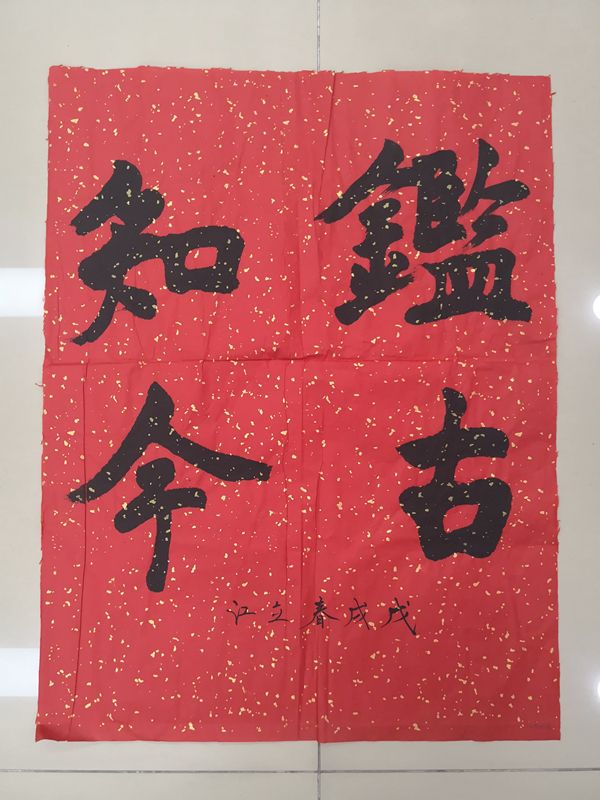 鑑古
知今
戊戌春立江